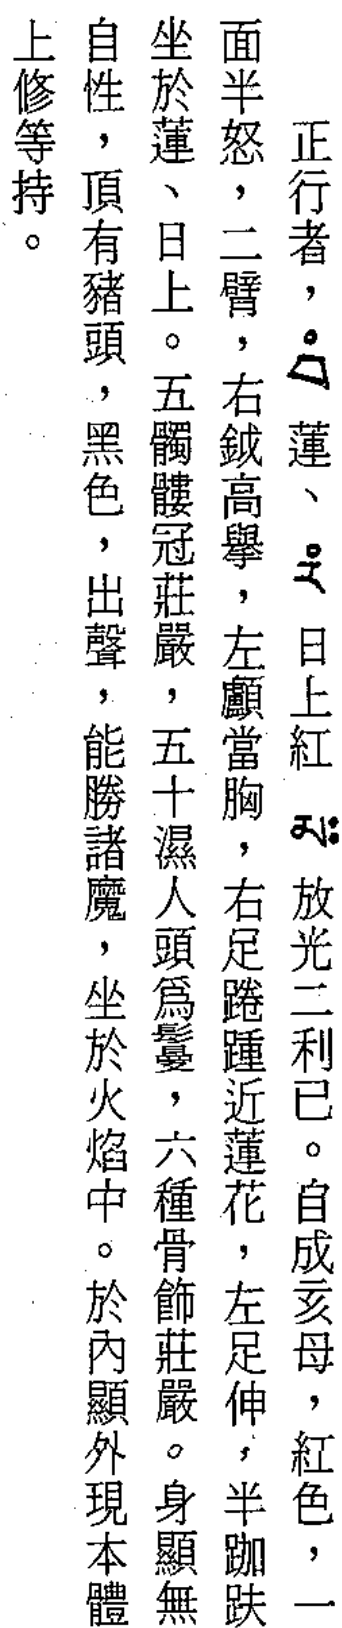 正行者，蓮、日上紅放光二利已。自成亥母，紅色，一
面半怒，二臂，右鉞高擧，左顱當胸，右足踡踵近蓮花，左足伸，半跏趺
坐於蓮、日上。五髑髏冠莊嚴，五十濕人頭爲鬘，六種骨飾莊嚴。身顯無
自性，頂有豬頭，黑色，出聲，能勝諸魔，坐於火焰中。於內顯外現本體
上修等持。